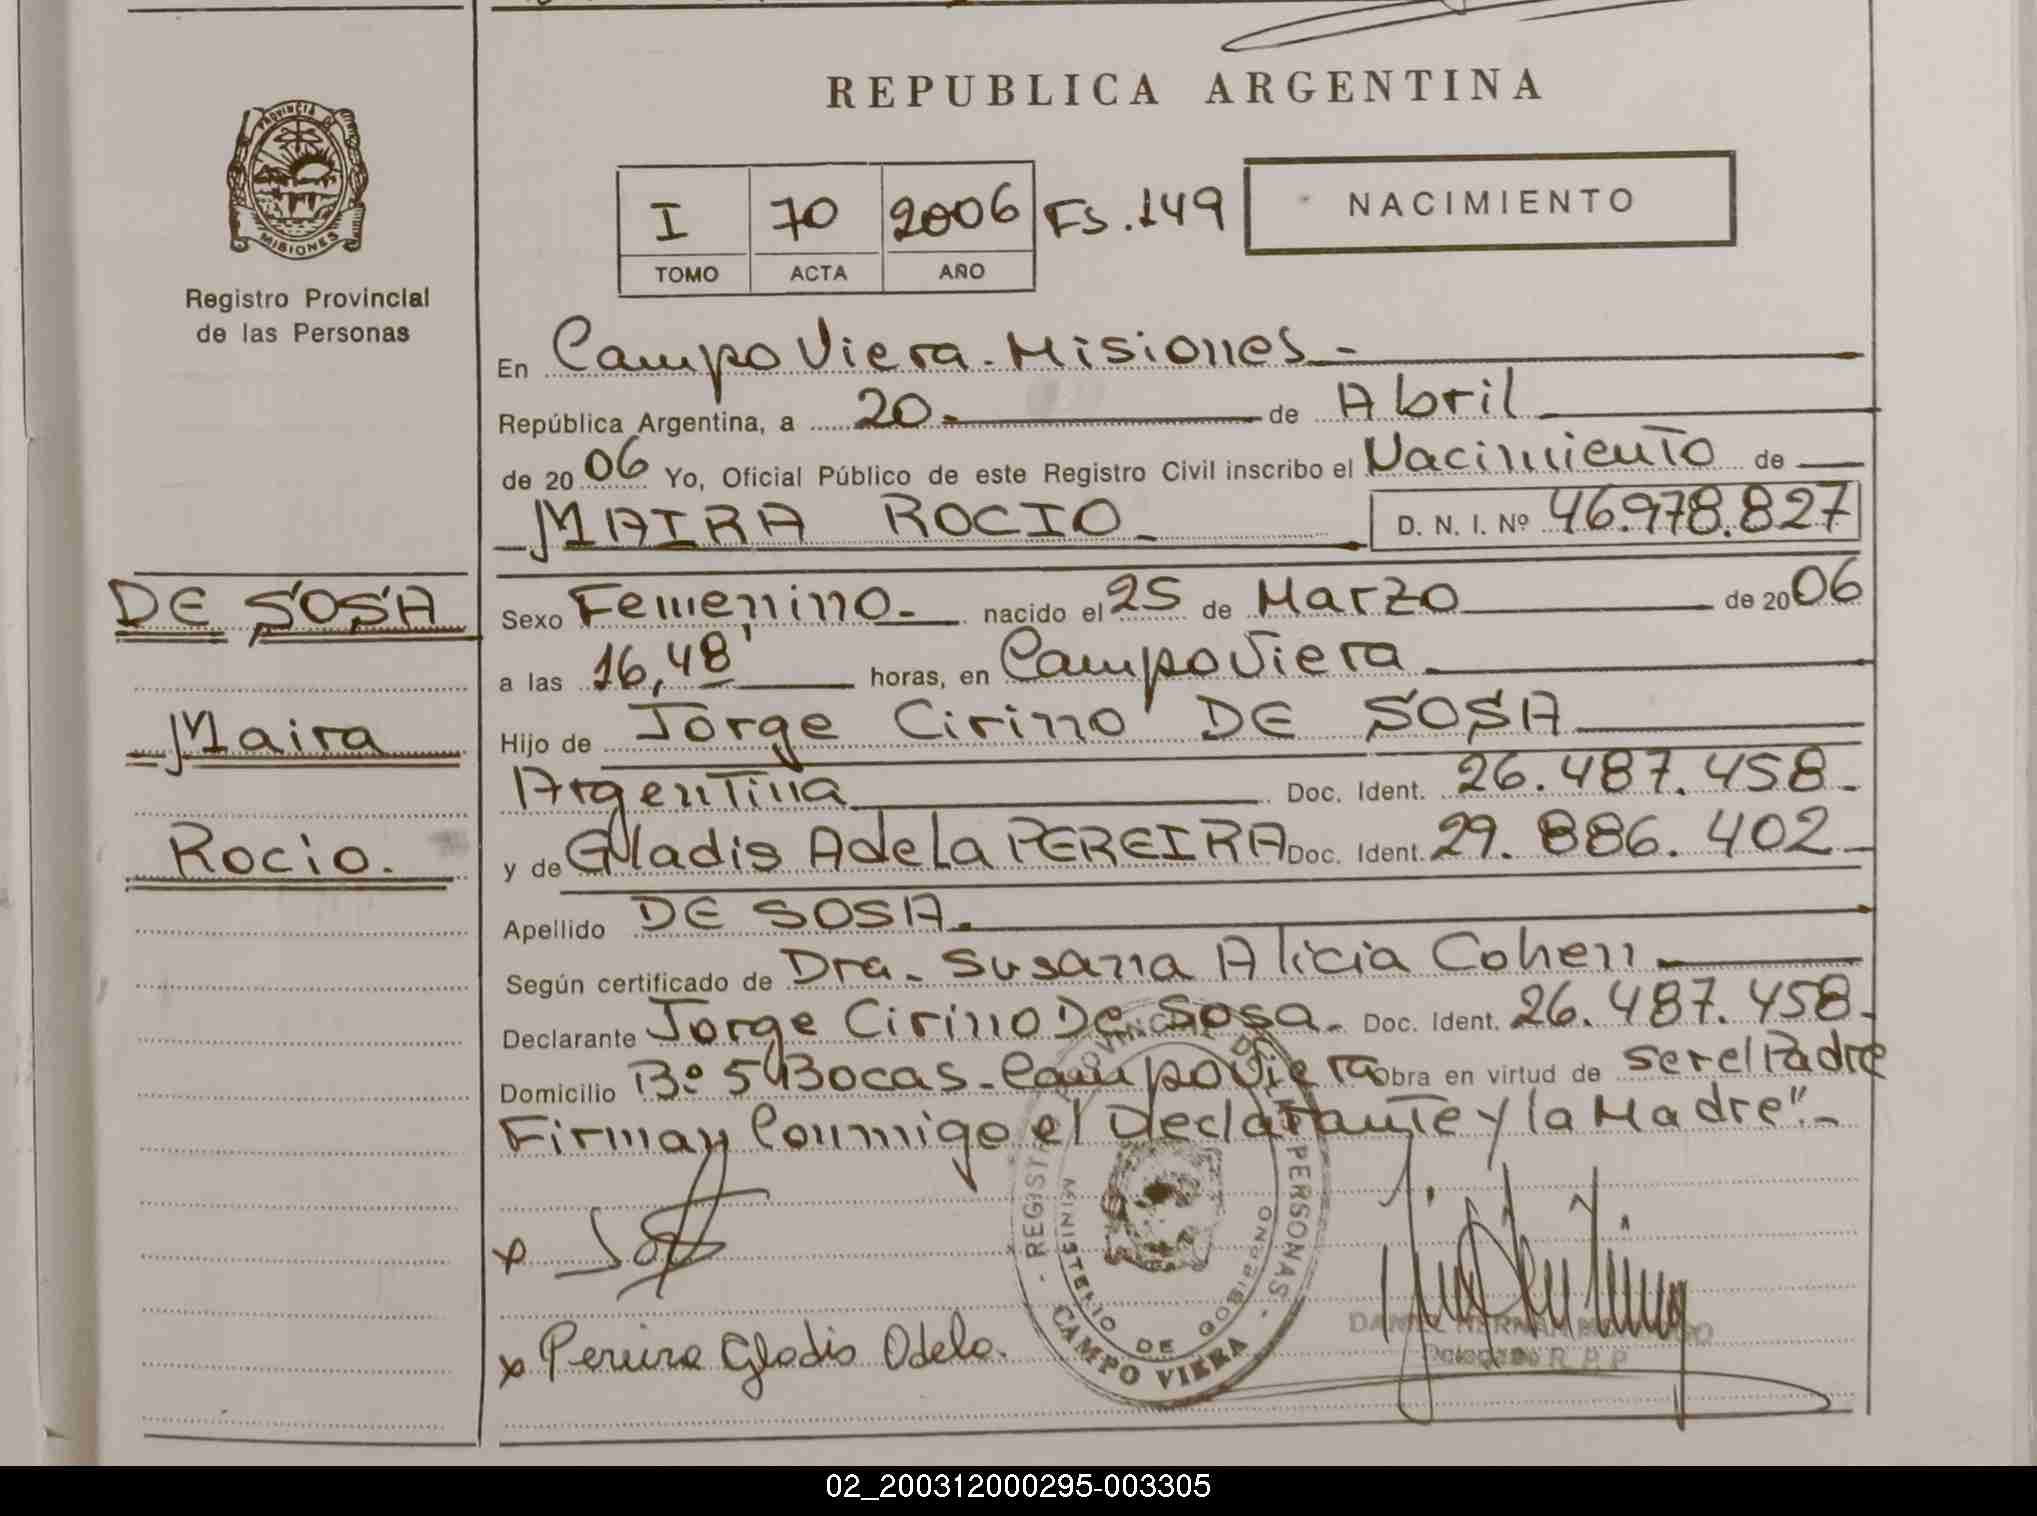 REPUBLICA ARGENTINA
PROVINCIA DE
MISIONES
Registro Provincial
de las Personas
I 70 2006 Fs. 149
TOMO ACTA AÑO
NACIMIENTO
En Campo Viera - Misiones -
República Argentina, a 20 - de Abril
de 20 06 Yo, Oficial Público de este Registro Civil inscribo el Nacimiento de
MAIRA ROCIO - D. N. I. Nº 46.978.827
DE SOSA
Maira
Rocio.
Sexo Femenino - nacido el 25 de Marzo de 20 06
a las 16,48' horas, en Campo Viera
Hijo de Jorge Cirino DE SOSA
Argentina Doc. Ident. 26.487.458 -
y de Gladis Adela PEREIRA Doc. Ident. 29.886.402 -
Apellido DE SOSA -
Según certificado de Dra. Susana Alicia Cohen
Declarante Jorge Cirino De Sosa - Doc. Ident. 26.487.458 -
Domicilio Bº 5 Bocas - Campo Viera obra en virtud de ser el Padre
Firman Conmigo el Declarante y la Madre". -
x
x Pereira Gladis Adela.
REGISTRO PROVINCIAL DE LAS PERSONAS -
MINISTERIO DE GOBIERNO
CAMPO VIERA
DANIEL HERNAN
Delegado R. P. P.
02_200312000295-003305